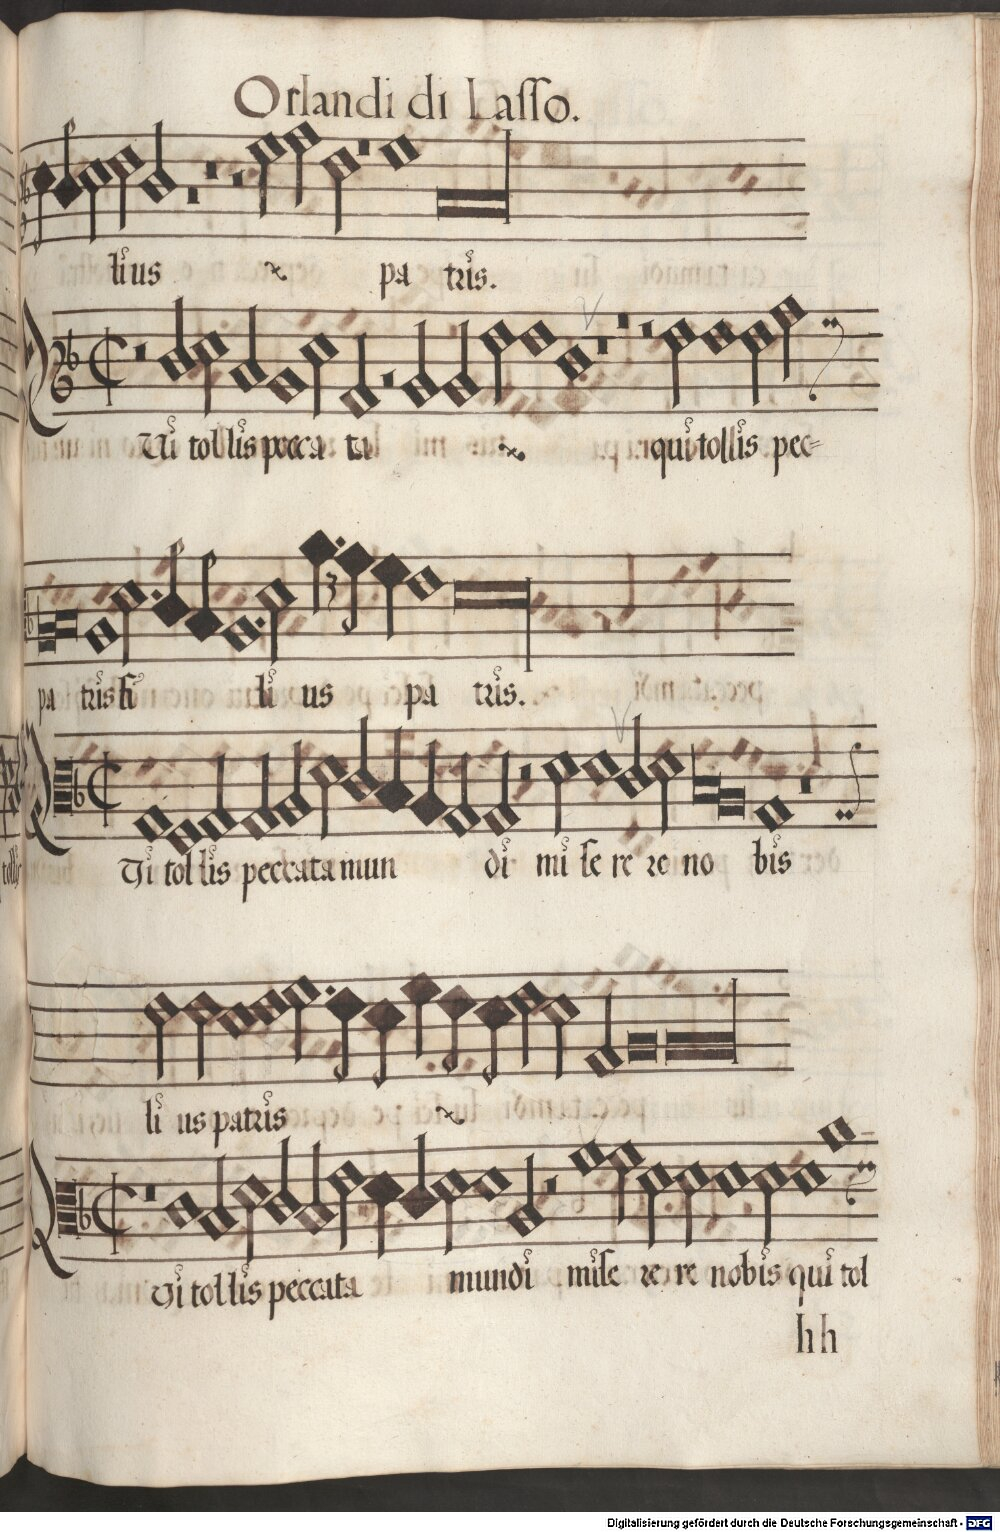 Orlandi di Lasso.
lius pa tris.
Qui tollis pecca ta qui tollis pec=
pa tris fi li us pa tris.
Qui tol lis peccata mun di mi se re re no bis
li us patris
Qui tollis peccata mundi mise re re nobis qui tol
hh
Digitalisierung gefördert durch die Deutsche Forschungsgemeinschaft - DFG